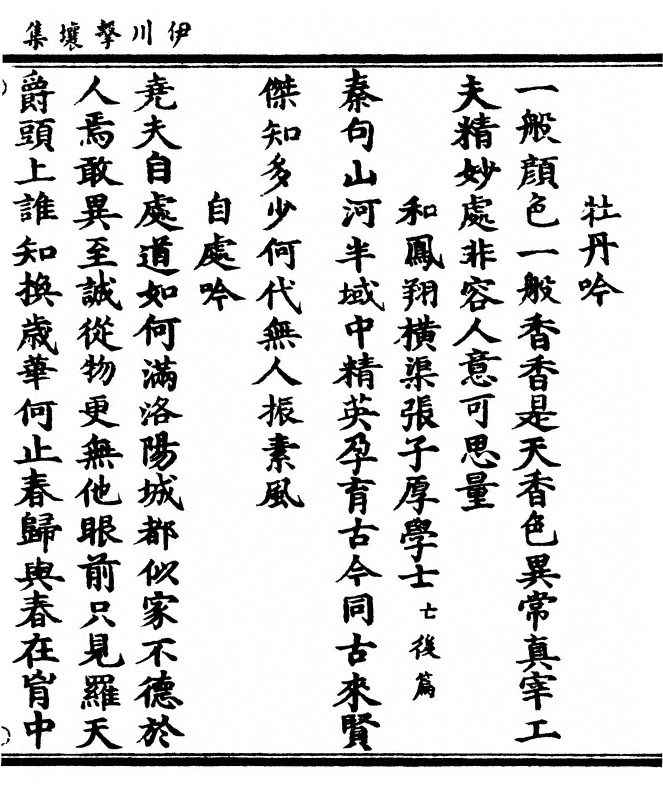 伊川擊壤集
牡丹吟
一般顔色一般香香是天香色異常真宰工
夫精妙處非容人意可思量
和鳳翔橫渠張子厚學士亡後篇
秦句山河半域中精英孕育古今同古來賢
傑知多少何代無人振素風
自處吟
堯夫自處道如何滿洛陽城都似家不德於
人焉敢異至誠從物更無他眼前只見羅天
爵頭上誰知換歳華何止春歸與春在胷中